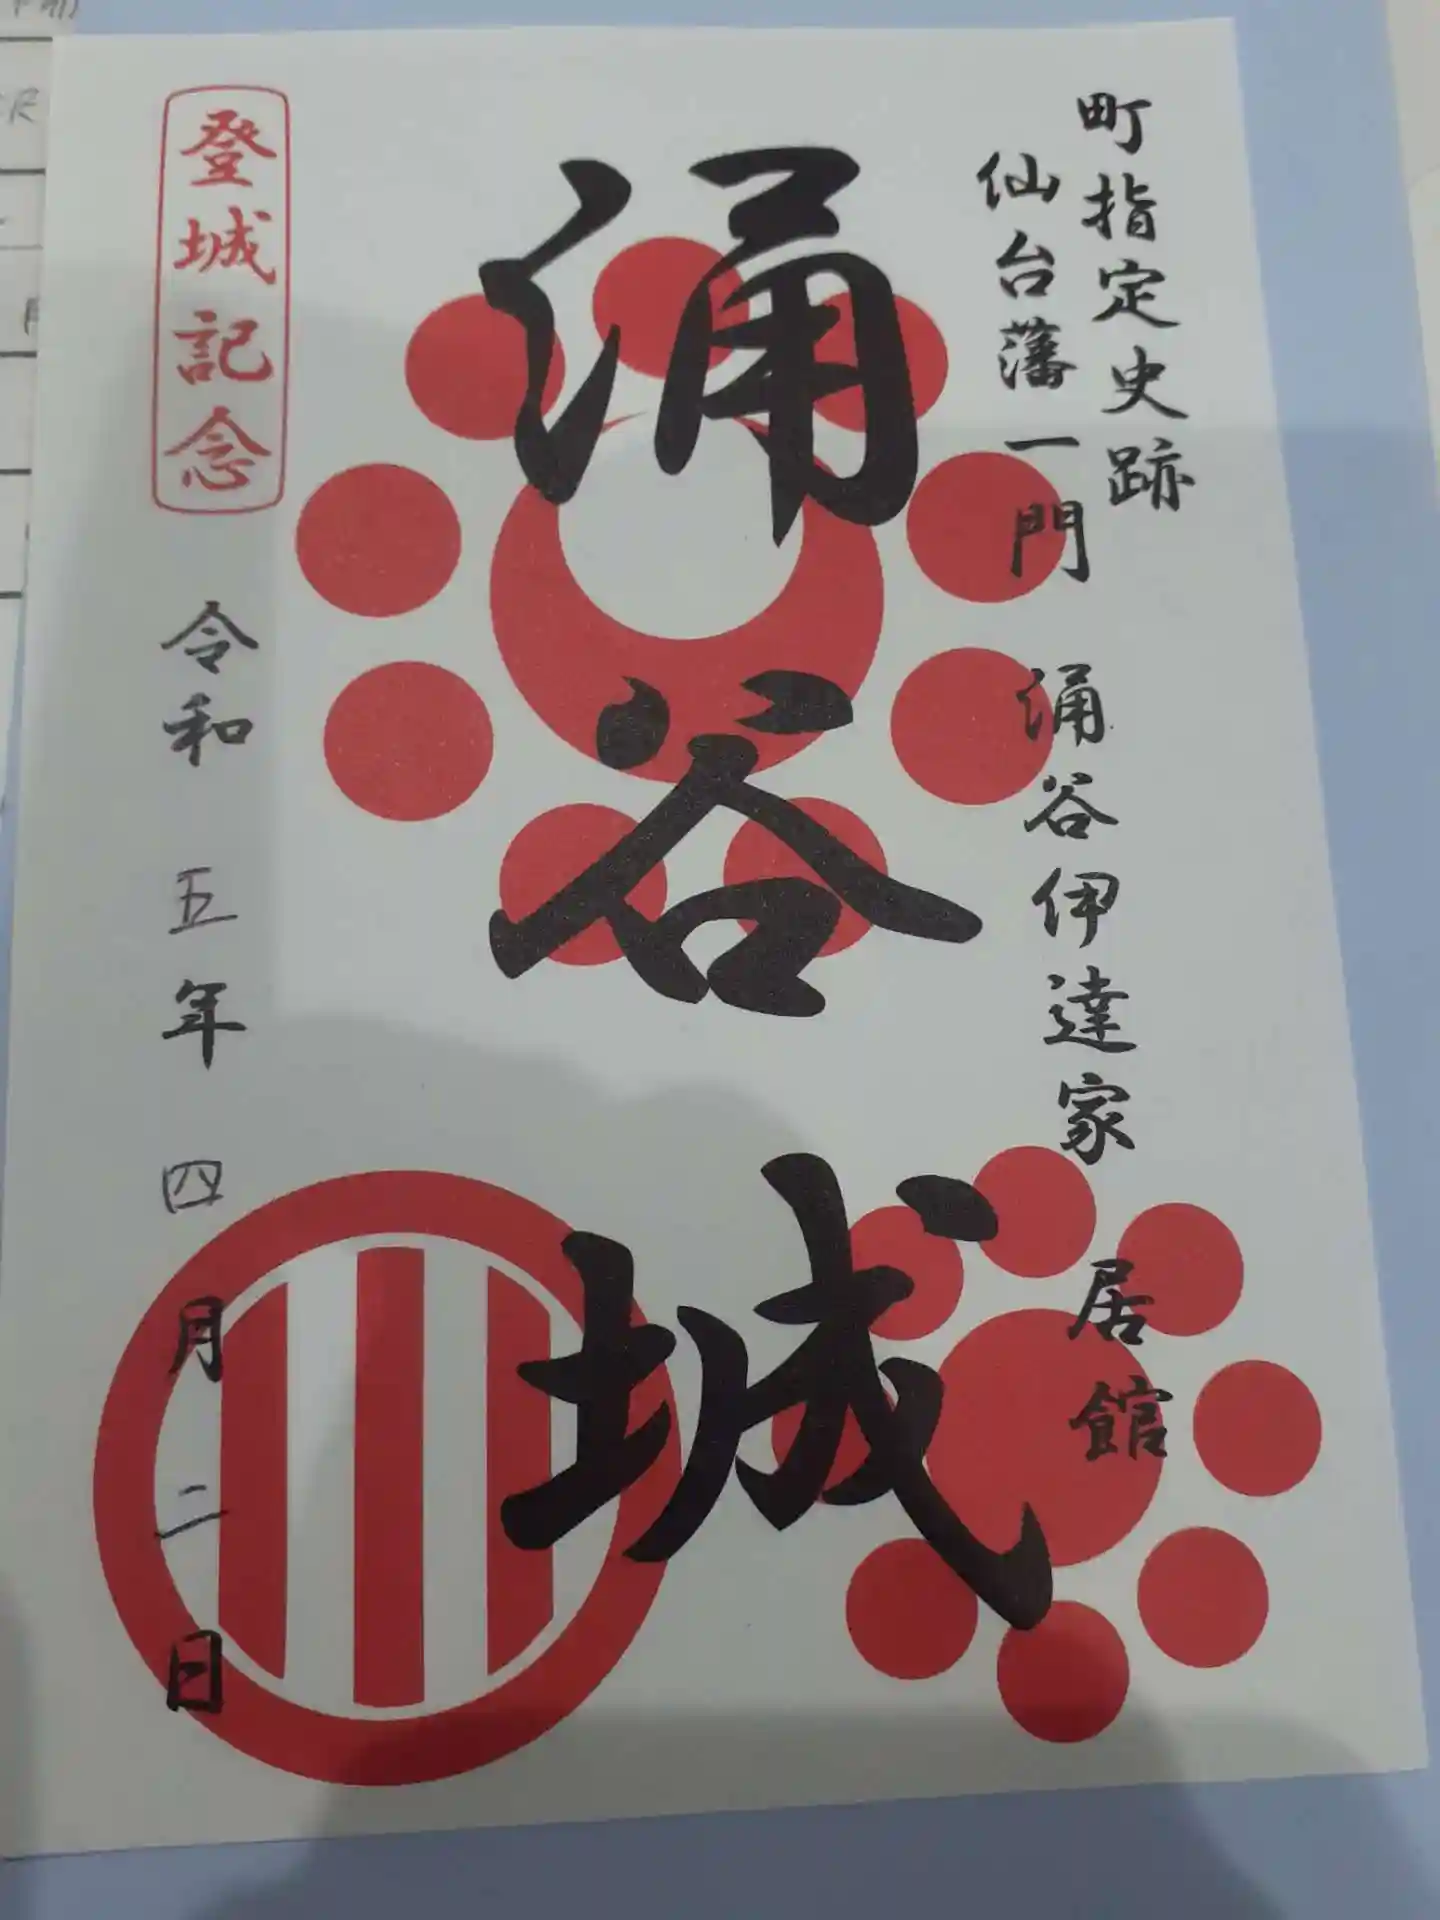 町指定史跡
仙台藩一門 涌谷伊達家 居館
涌谷城
登城記念
令和 五年 四月二日